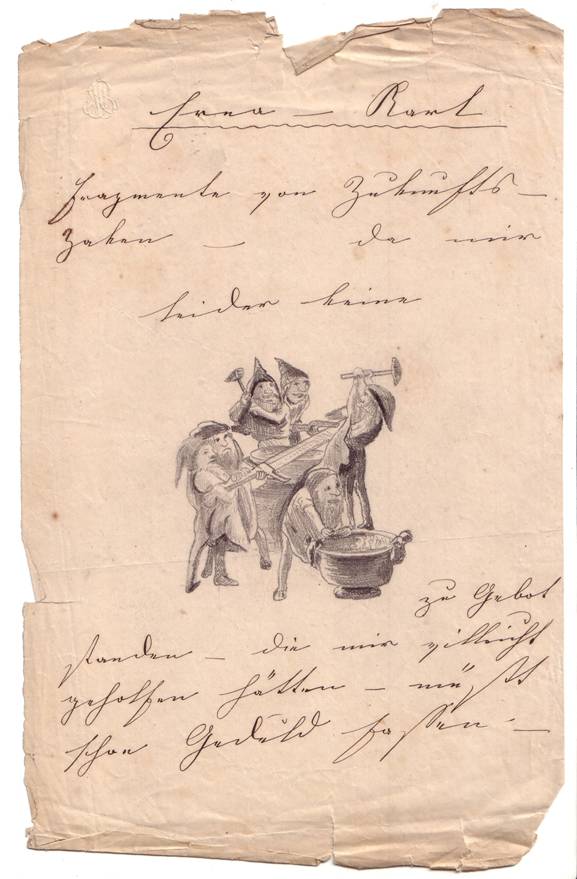 Erna — Karl
Fragmente von Zukunfts-
Zaken — da mir
leider keine
zu Gebot
standen — die mir villeicht
geholfen hätten — müßt
schon Geduld fassen —